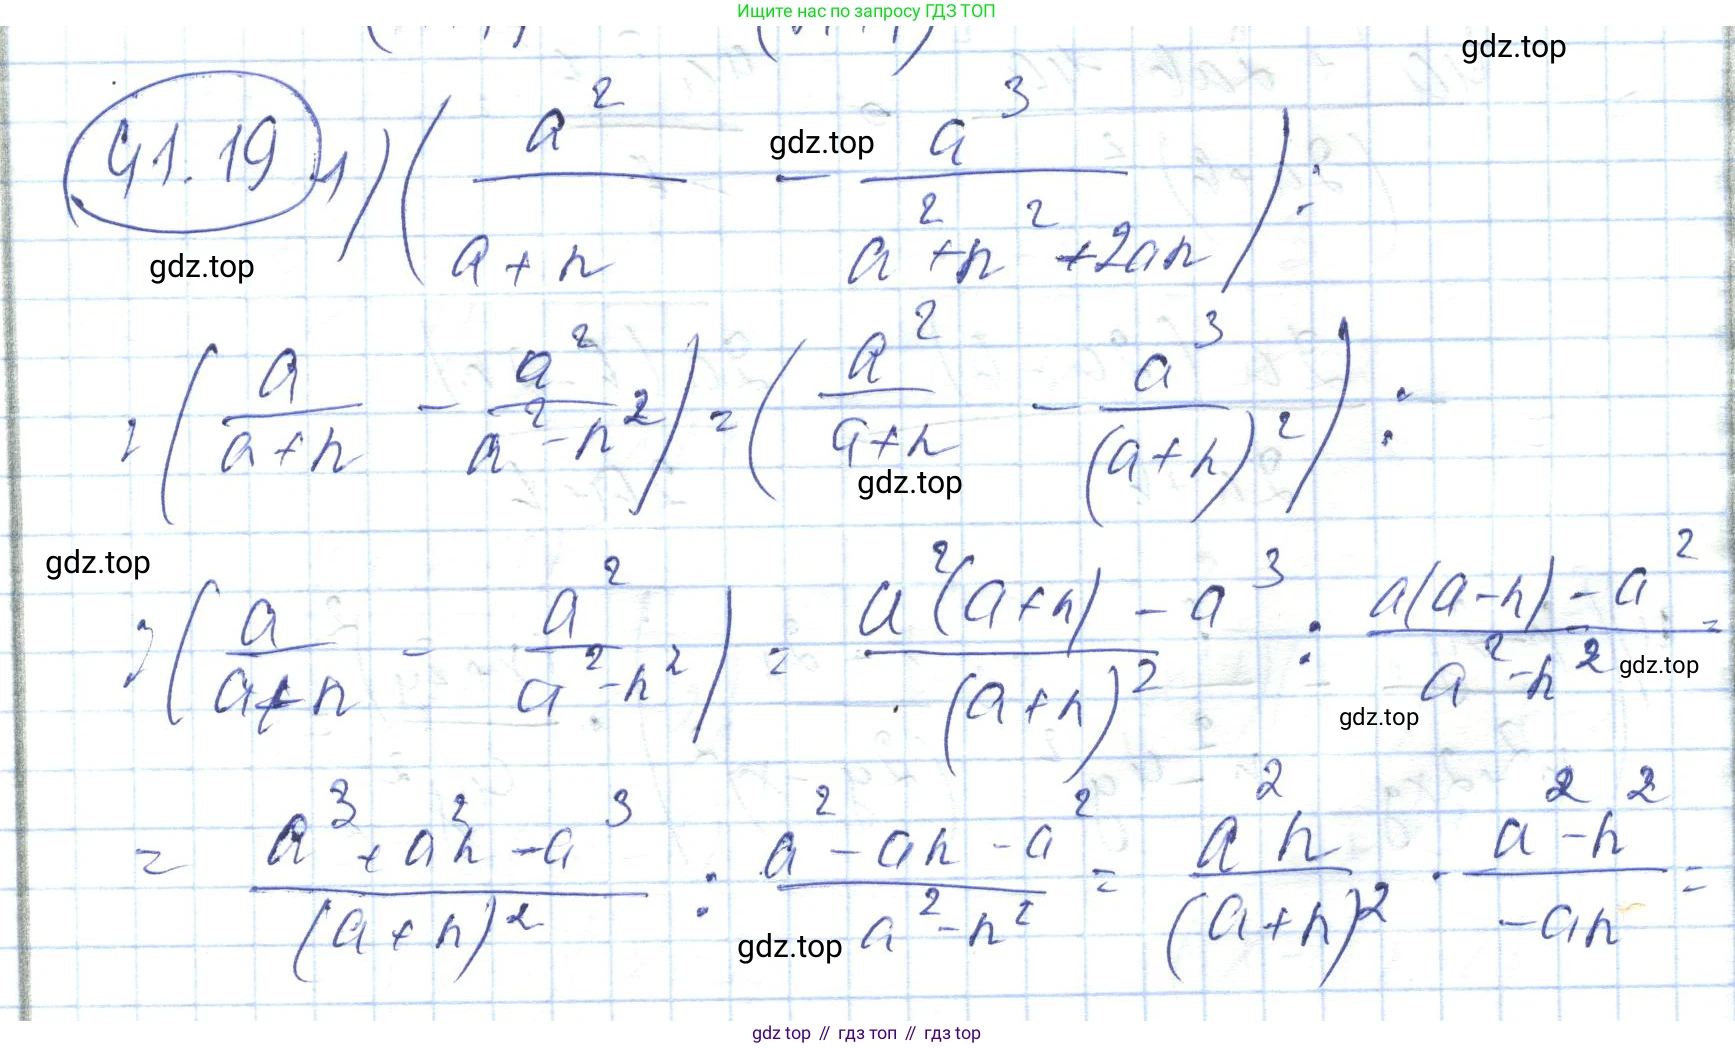 Ищите нас по запросу ГДЗ ТОП
gdz.top
41.19 1) (a²/(a+n) - a³/(a²+n²+2an)) :
gdz.top
gdz.top
: (a/(a+n) - a²/(a²-n²)) = (a²/(a+n) - a³/(a+n)²) :
gdz.top
gdz.top
: (a/(a+n) - a²/(a²-n²)) = (a²(a+n) - a³)/(a+n)² : (a(a-n) - a²)/(a²-n²) =
gdz.top
gdz.top
= (a³+a²n-a³)/(a+n)² : (a²-an-a²)/(a²-n²) = a²n/(a+n)² · (a²-n²)/(-an) =
gdz.top
gdz top // гдз топ // gdz top